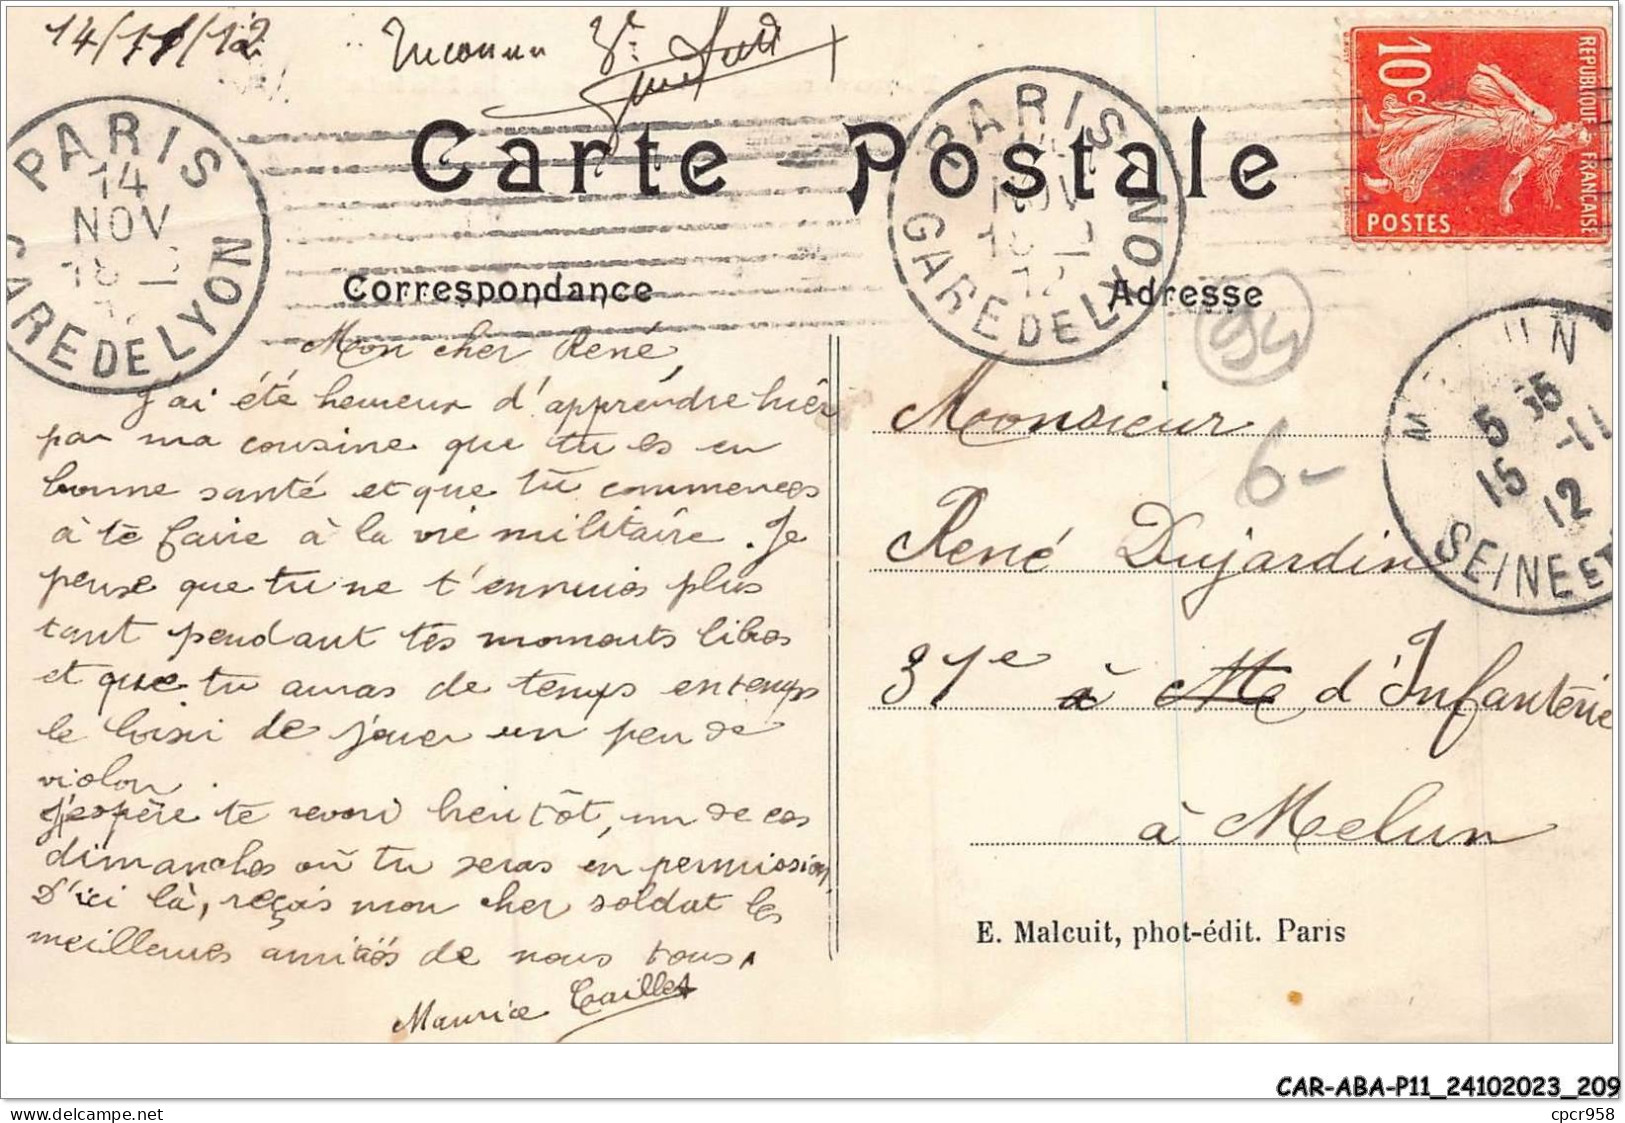 14/11/12
Inconnu
PARIS
14
NOV
GARE DE LYON
PARIS
GARE DE LYON
10c
REPUBLIQUE FRANÇAISE
POSTES
Carte Postale
Correspondance
Adresse
94
6-
5 35
15 -11
12
SEINE ET
Mon cher René,
J'ai été heureux d'apprendre hier
par ma cousine que tu es en
bonne santé et que tu commences
à te faire à la vie militaire. Je
pense que tu ne t'ennuies plus
tant pendant tes moments libres
et que tu auras de temps en temps
le loisir de jouer un peu de
violon.
J'espère te revoir bientôt, un de ces
dimanches où tu seras en permission
D'ici là, reçois mon cher soldat les
meilleures amitiés de nous tous.
Maurice Taillet
Monsieur
René Dujardin
31e à Me d'Infanterie
à Melun
E. Malcuit, phot-édit. Paris
CAR-ABA-P11_24102023_209
cpcr958